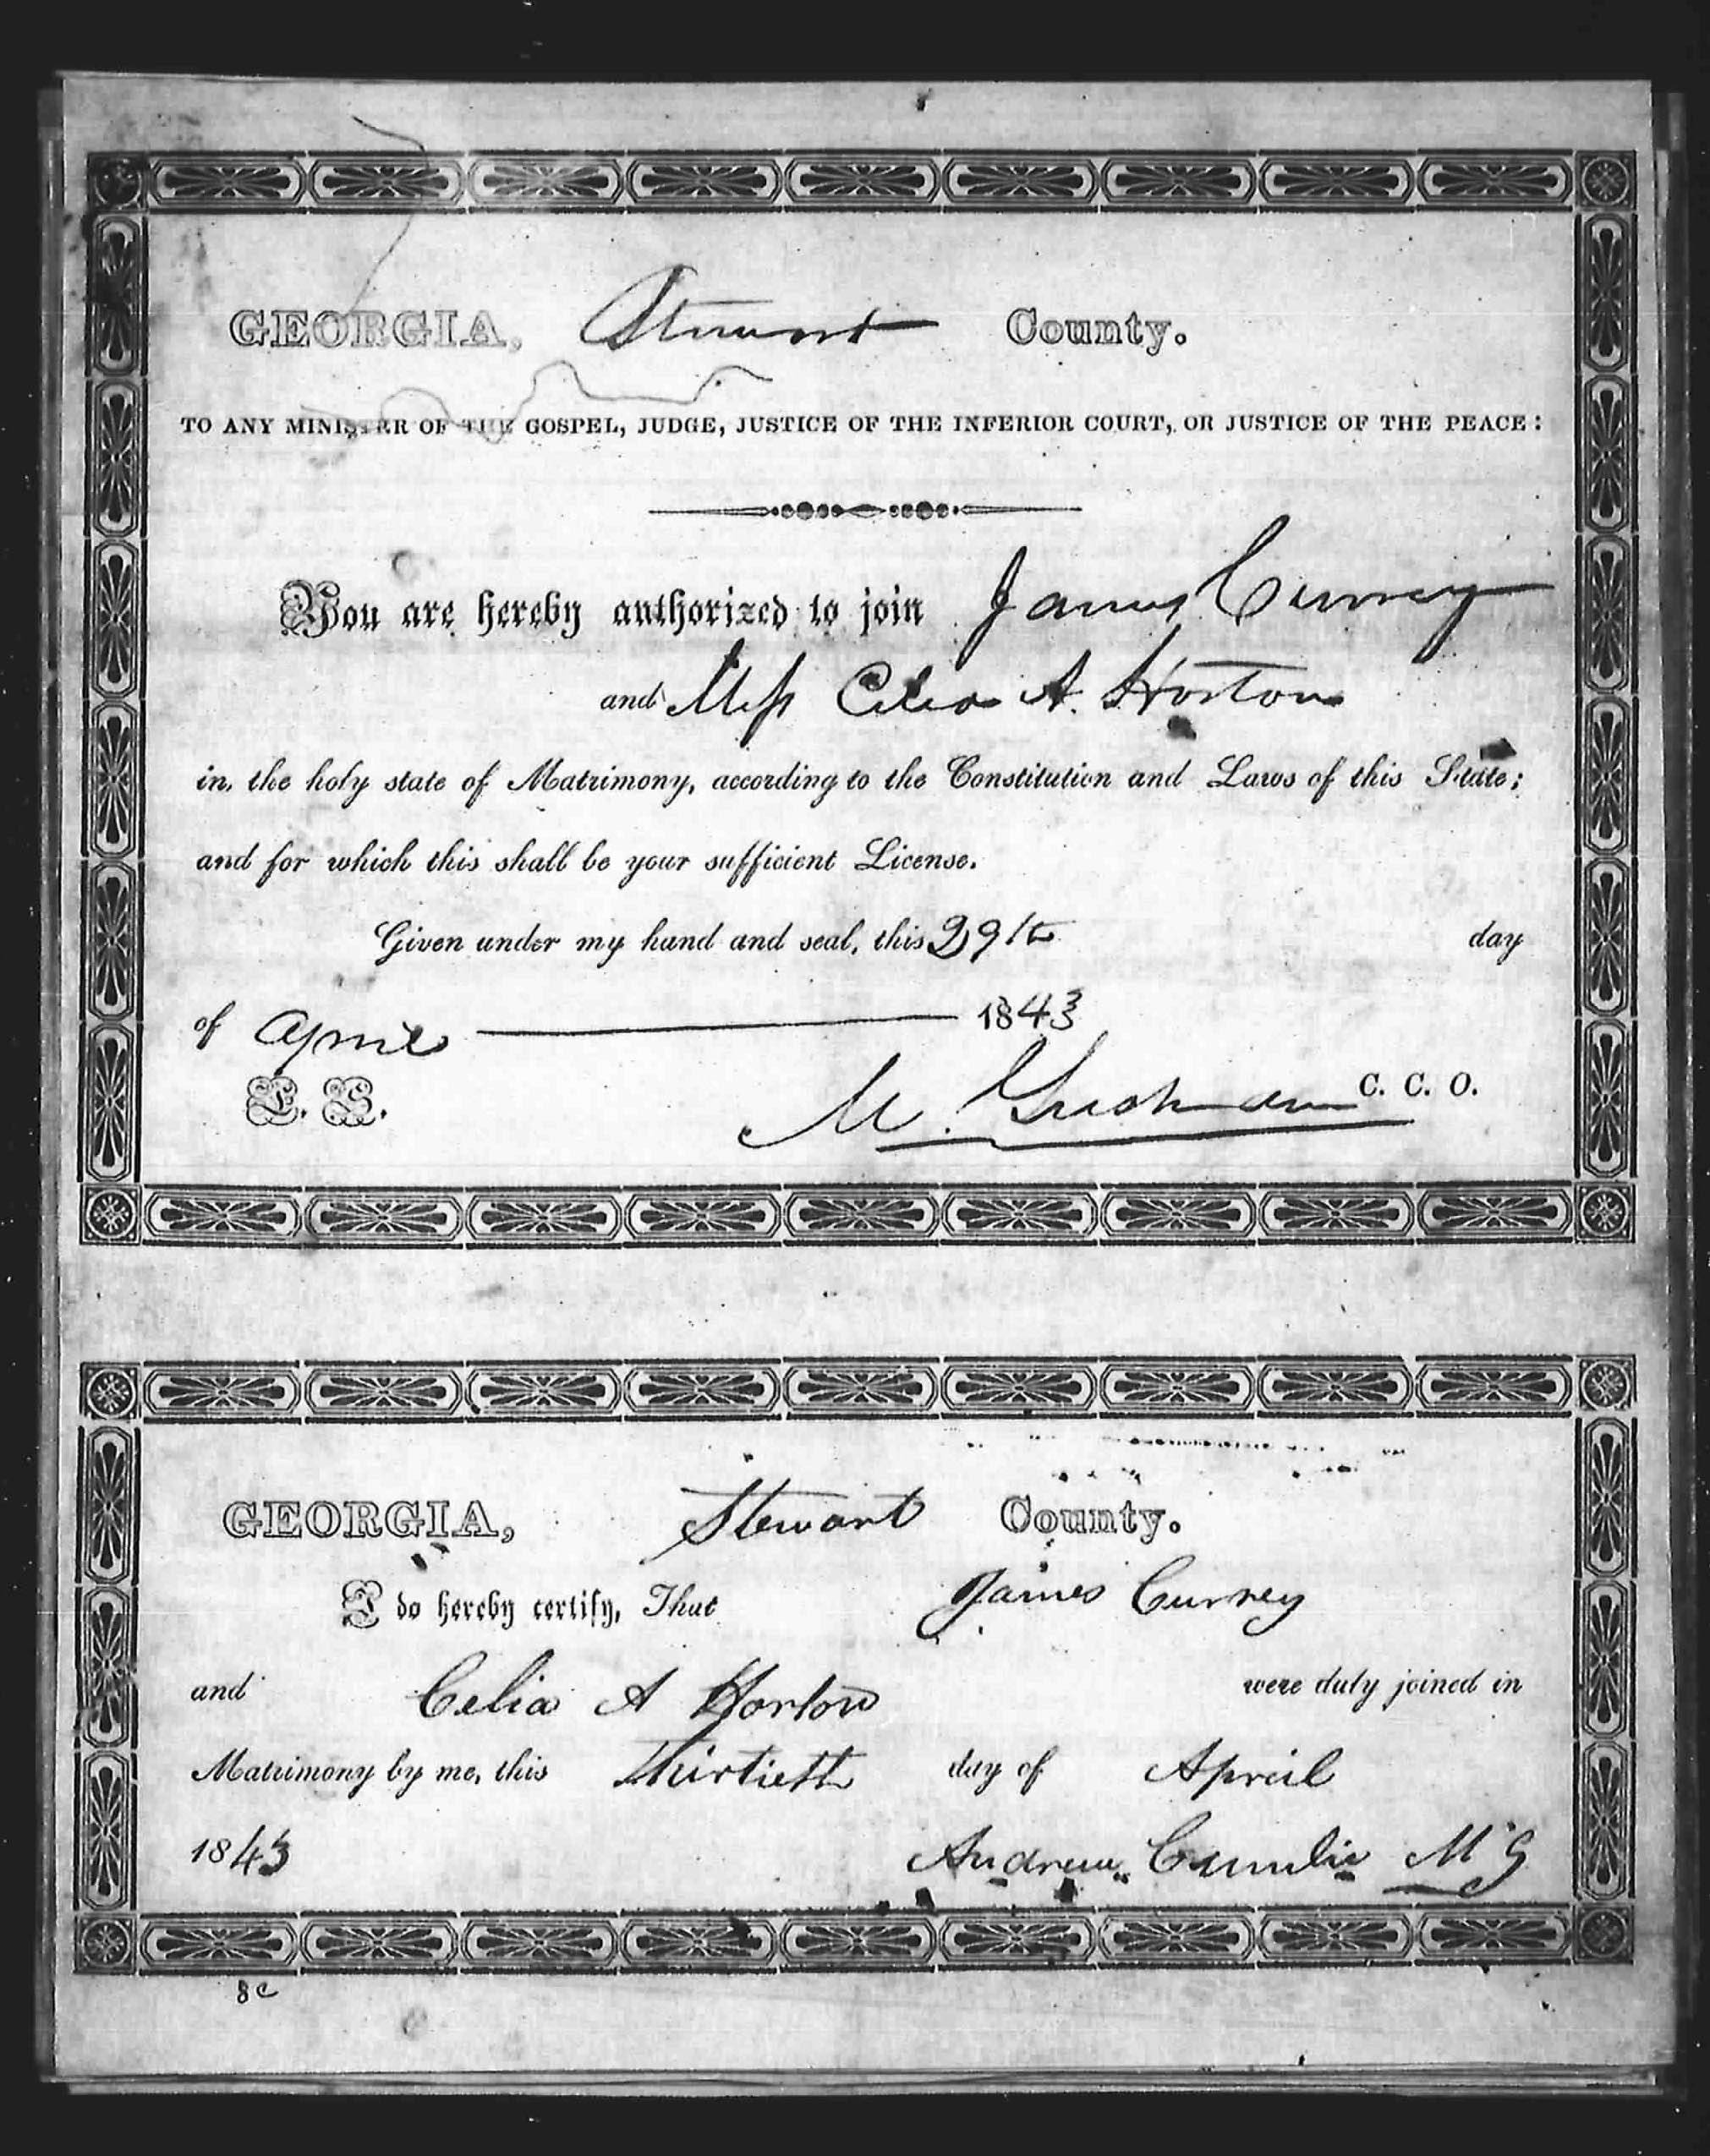 GEORGIA, Stewart County.
TO ANY MINISTER OF THE GOSPEL, JUDGE, JUSTICE OF THE INFERIOR COURT, OR JUSTICE OF THE PEACE:
You are hereby authorized to join James Currey
and Miss Celia A. Horton
in the holy state of Matrimony, according to the Constitution and Laws of this State;
and for which this shall be your sufficient License.
Given under my hand and seal, this 29th day
of April 1843
L. S. M. C. C. O.
GEORGIA, Stewart County.
I do hereby certify, That James Currey
and Celia A Horton were duly joined in
Matrimony by me, this Thirtieth day of April
1843 Andrew MG
8c